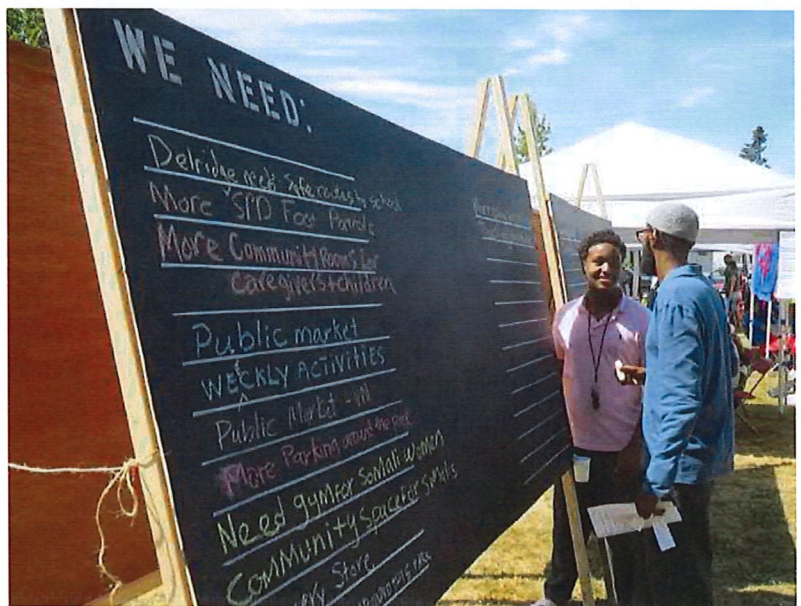 WE NEED:
Delridge needs safe routes to school
More SPD Foot Patrols
More Community Rooms for
caregivers+children
Public market
WEEKLY ACTIVITIES
Public Market - 
More Parking around the park
Need gym for Somali Women
COMMUNITY space for Somalis
Store